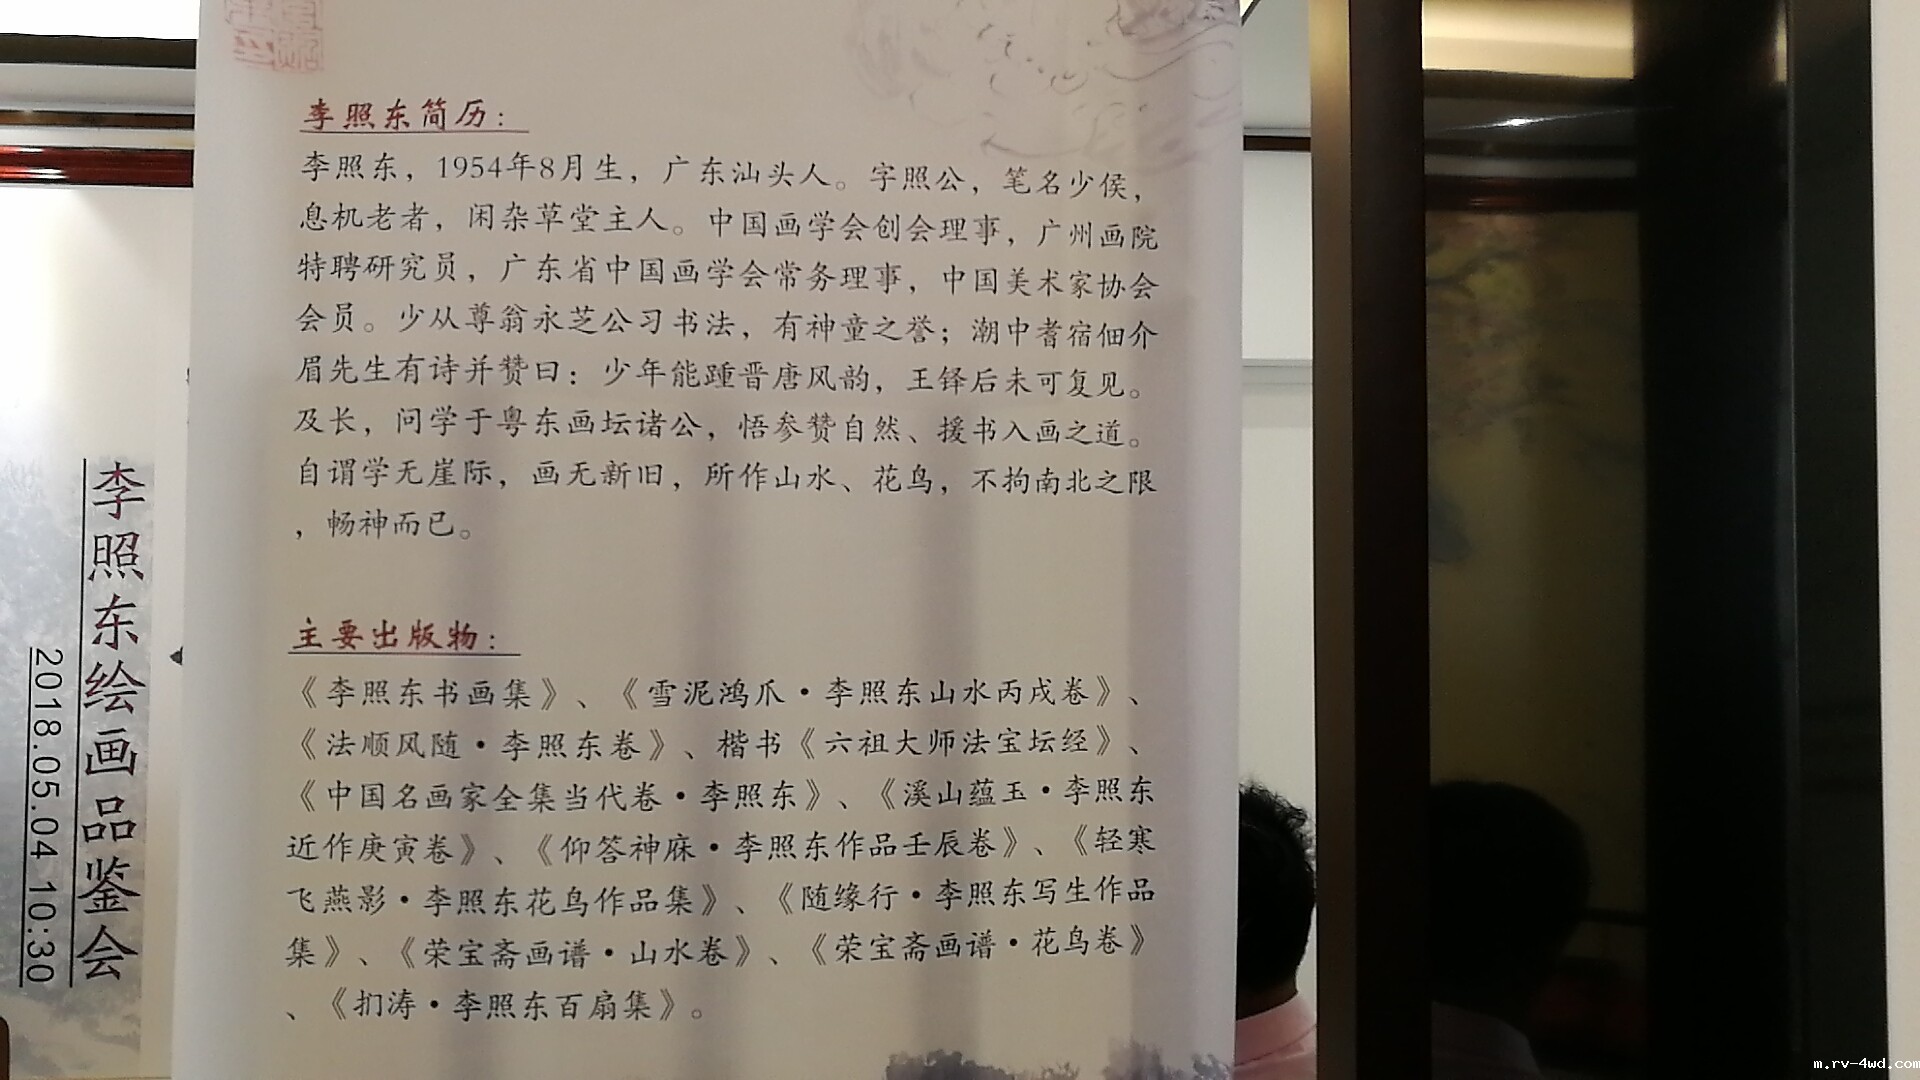 李照东简历：
李照东，1954年8月生，广东汕头人。字照公，笔名少侯，
息机老者，闲杂草堂主人。中国画学会创会理事，广州画院
特聘研究员，广东省中国画学会常务理事，中国美术家协会
会员。少从尊翁永芝公习书法，有神童之誉；潮中耆宿佃介
眉先生有诗并赞曰：少年能踵晋唐风韵，王铎后未可复见。
及长，问学于粤东画坛诸公，悟参赞自然、援书入画之道。
自谓学无崖际，画无新旧，所作山水、花鸟，不拘南北之限
，畅神而已。
主要出版物：
《李照东书画集》、《雪泥鸿爪·李照东山水丙戌卷》、
《法顺风随·李照东卷》、楷书《六祖大师法宝坛经》、
《中国名画家全集当代卷·李照东》、《溪山蕴玉·李照东
近作庚寅卷》、《仰答神庥·李照东作品壬辰卷》、《轻寒
飞燕影·李照东花鸟作品集》、《随缘行·李照东写生作品
集》、《荣宝斋画谱·山水卷》、《荣宝斋画谱·花鸟卷》
、《扪涛·李照东百扇集》。
李照东绘画品鉴会
2018.05.04 10:30
m.rv-4wd.com